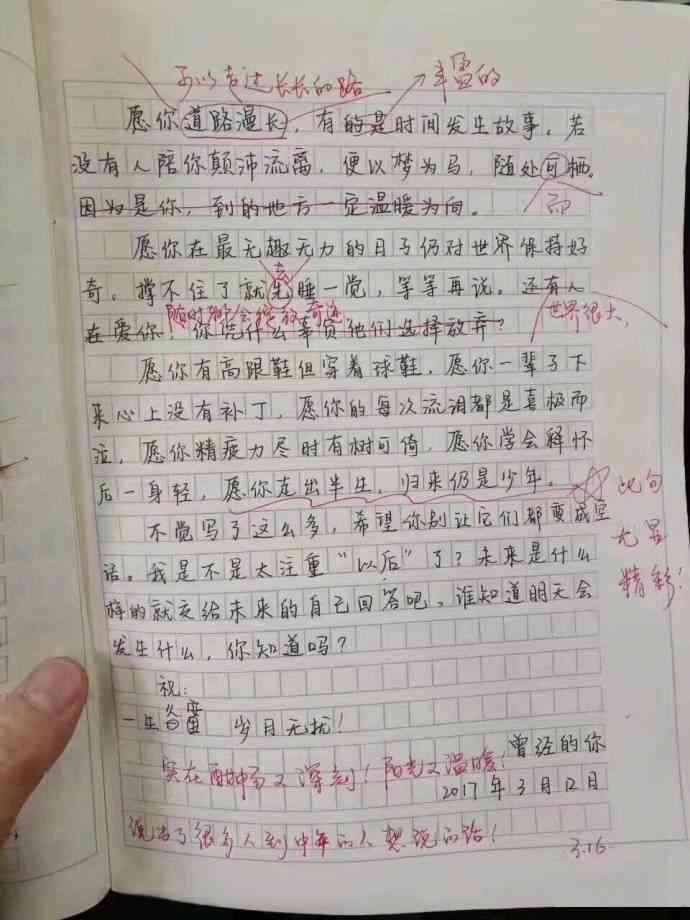 可以走过长长的路
丰富的
愿你道路漫长，有的是时间发生故事。若
没有人陪你颠沛流离，便以梦为马，随处可栖。
而
因为是你，到的地方一定温暖为向。
愿你在最无趣无力的日子仍对世界保持好
去
奇。撑不住了就先睡一觉，等等再说。还有人
随时都会绽放奇迹
世界很大，
在爱你，你凭什么辜负他们选择放弃？
愿你有高跟鞋但穿着球鞋，愿你一辈子下
来心上没有补丁，愿你的每次流泪都是喜极而
泣，愿你精疲力尽时有树可倚，愿你学会释怀
后一身轻，愿你走出半生，归来仍是少年。
此句
尤显
精彩！
不觉写了这么多，希望你别让它们都变成空
话。我是不是太注重“以后”了？未来是什么
样的就交给未来的自己回答吧，谁知道明天会
发生什么，你知道吗？
祝：
一生 岁月无扰！
曾经的你
实在 又深刻！阳光又温暖！
2017年3月12日
说出了很多人到中年的人想说的话！
3.16